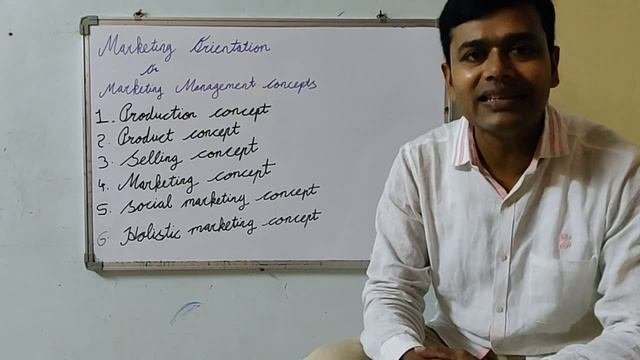 Marketing Orientation
Or
Marketing Management Concepts
1. Production concept
2. Product concept
3. Selling concept
4. Marketing concept
5. Social marketing concept
6. Holistic marketing concept